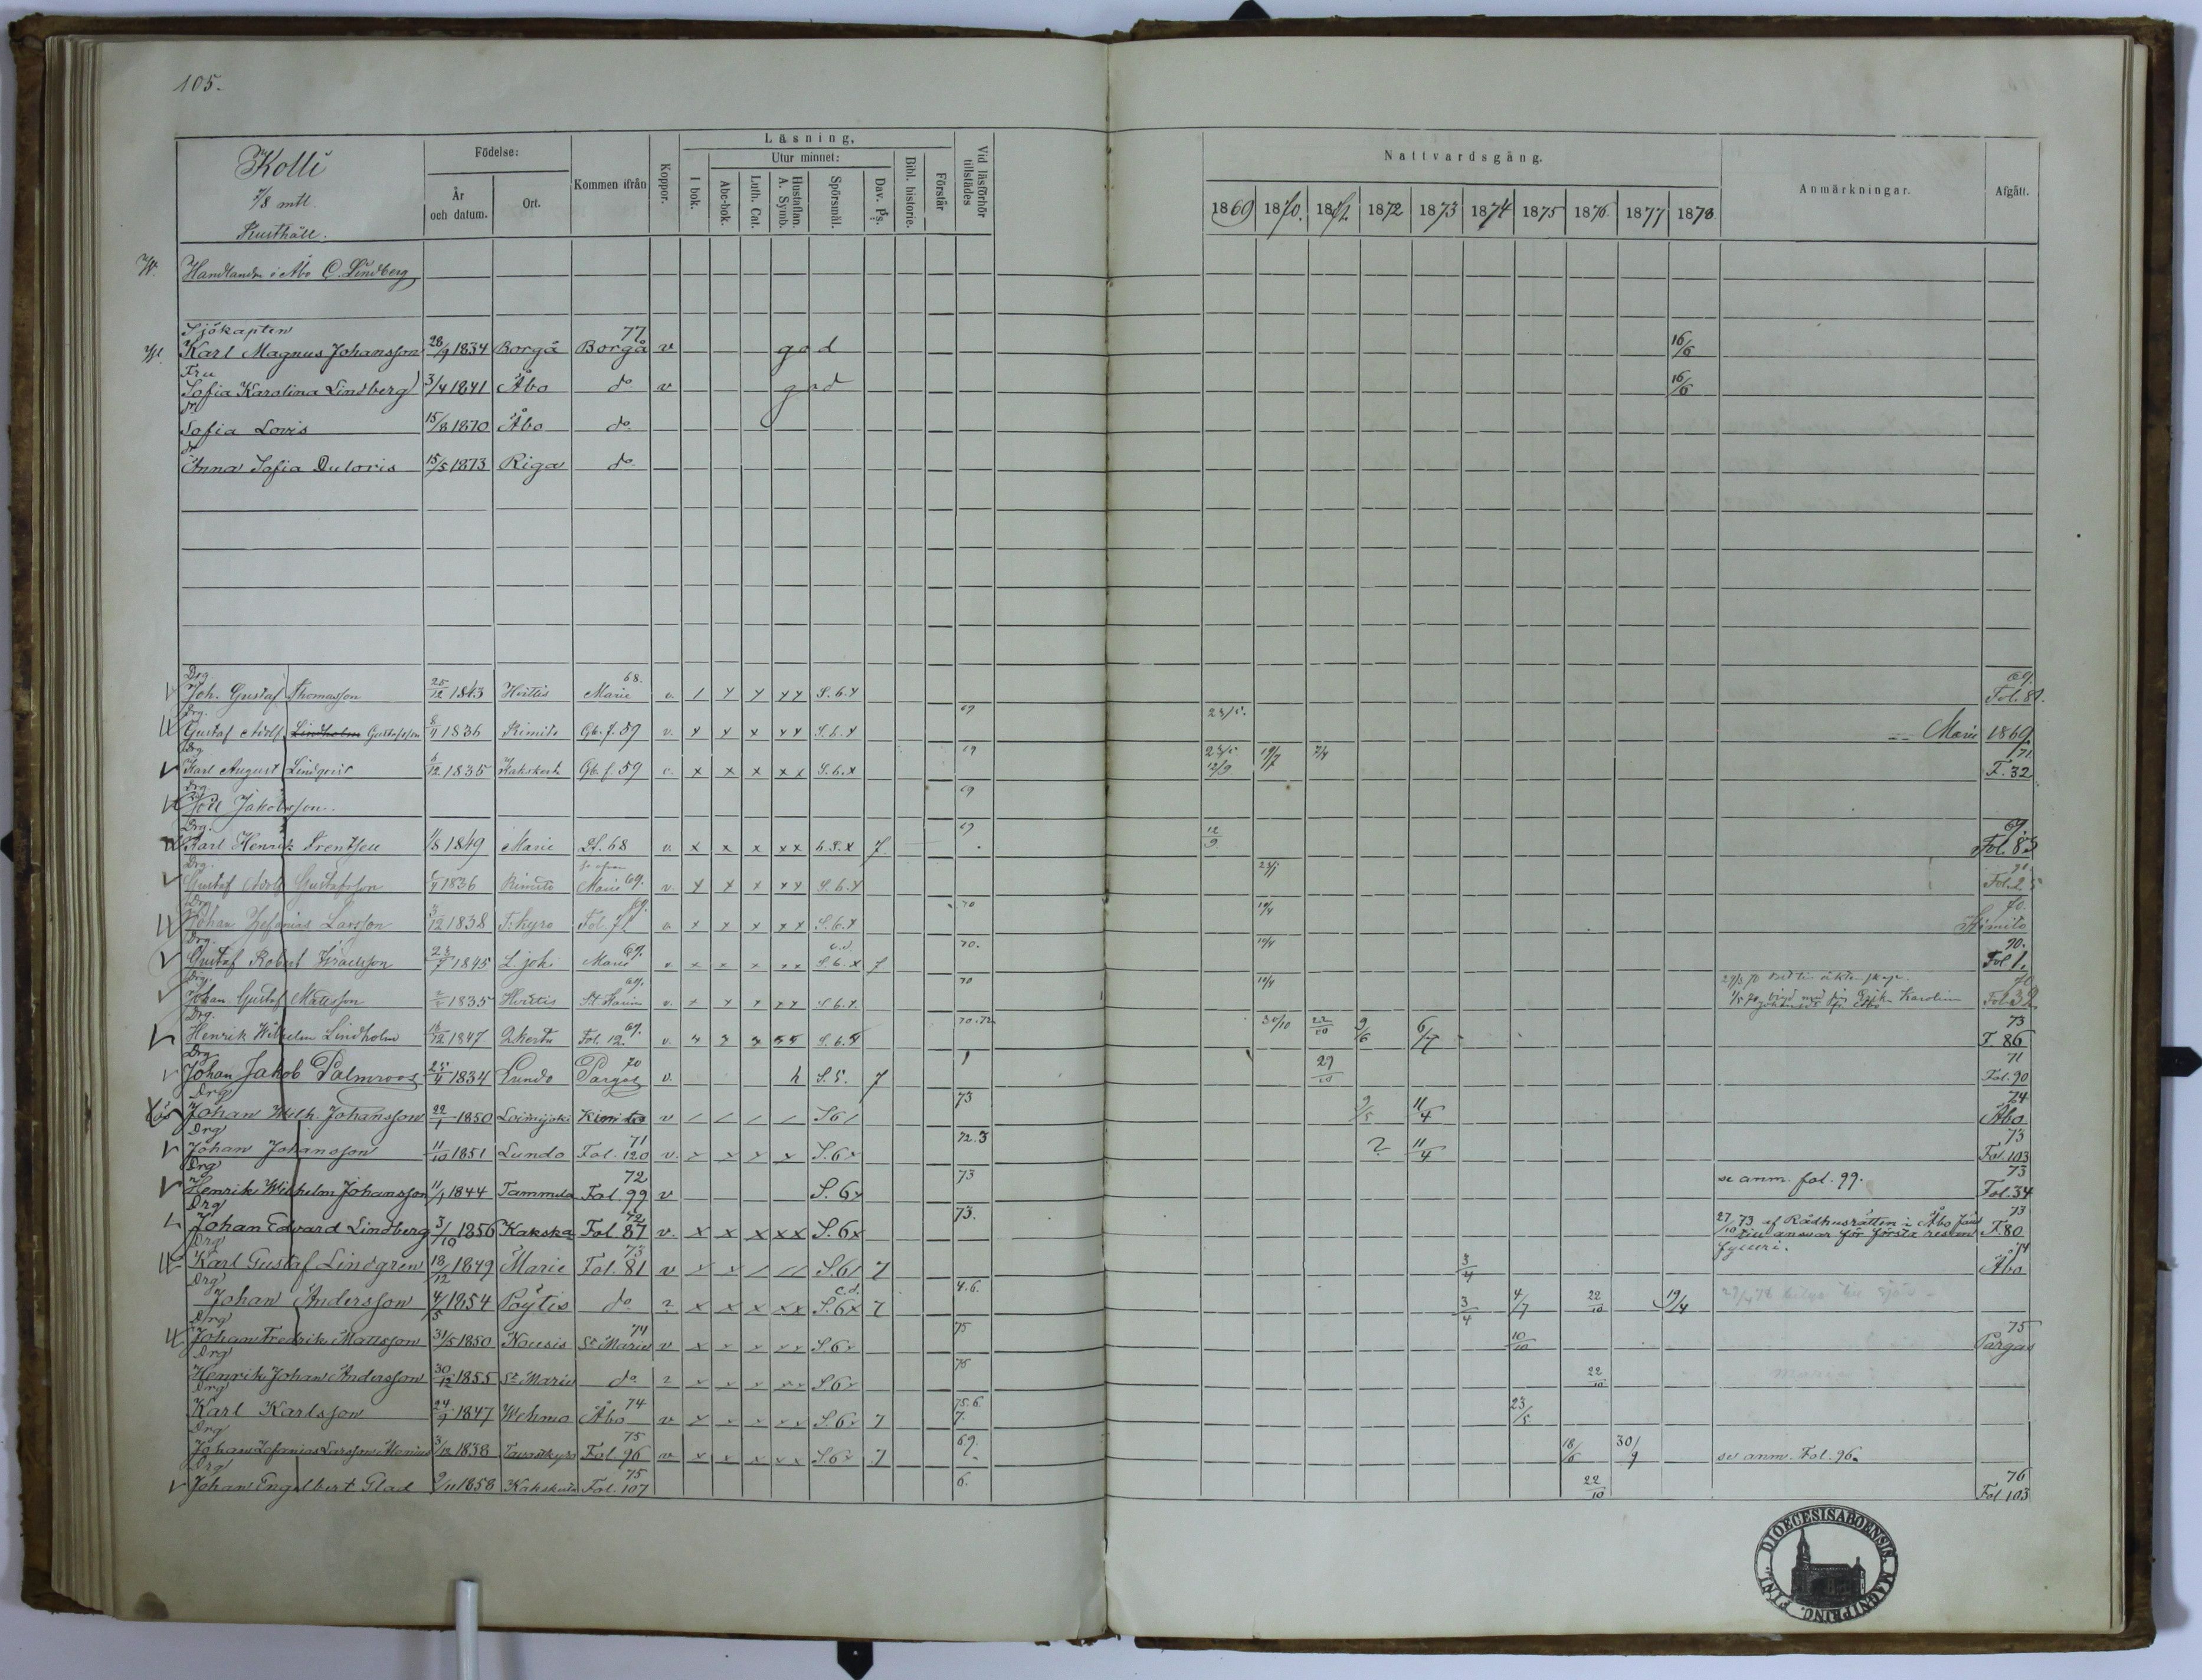 105.
Kolli
7/8 mtl.
Rusthåll.
Födelse:
År och datum.
Ort.
Kommen ifrån
Koppor.
Läsning.
I bok.
Utur minnet:
Abc-bok.
Luth. Cat.
Hustaflan. A. Symb.
Spörsmål.
Dav. Ps.
Bibl. historie.
Förstår
Vid läsförhör tillstädes
Nattvardsgång.
1869 1870. 1871. 1872 1873 1874 1875 1876 1877 1878
Anmärkningar.
Afgått.
Handlanden i Åbo C. Lindberg
Sjökapten 77
Karl Magnus Johansson 28/9 1834 Borgå Borgå v god 16/6
Fru
Sofia Karolina Lindberg 3/4 1841 Åbo do v god 16/6
dr
Sofia Lovis 15/8 1870 Åbo do
dr
Anna Sofia Duloris 15/5 1873 Riga do
Drg. 68. 69.
Joh. Gustaf Thomasson 25/12 1843 Hvittis Marie v. S. 6. x Fol. 81.
Drg. 69 23/5.
Gustaf Adolf Lindholm Gustafsson 1836 Kimito Gb. f. 59 v. x x x x x S. 6. x Marie 1869
Drg. 69 23/5 19/7 71.
Karl August Lindqvist 6/12 1835 Kakskerta Gb. f. 59 v. x x x x x S. 6. x 12/9 F. 32
Drg. 69
Jakobsson.
Drg. 69 12/9 69
Karl Henrik Frentzell 1/8 1849 Marie Pl. 68 v x x x x x 6. S. x 7 Fol. 83
Drg.
Gustaf Adolf Gustafsson 1836 Rimito Marie 69. v. x x x x x S. 6. x Fol. 25
Drg. 69. 70 10/4 70.
Johan Zefanias Larsson 3/12 1838 T. kyro Fol. 71 v. x x x x x S. 6. x Kimito
Drg. 70. 10/4 70.
Gustaf Robert Israelsson 1845 L. joki Marie 69. v. x x x x x S. 6. x 7 Fol. 1.
Drg. 69. 70 10/4
Johan Gustaf Mattsson 1835 Hvittis St Karins v. x x x x x S. 6. x. Fol. 32
Drg. 69. 70. 72. 30/10 22/10 9/6 6/7 73
Henrik Wilhelm Lindholm 1847 Kkerta Fol. 12. v. S. 6. x F. 86
Drg 70 71
Johan Jakob Palmroos 25/4 1834 Lundo Pargas v. h S. 5. 7 29/10 Fol. 90
Drg 73 9/5 11/4 74
Johan Wilh. Johansson 22/1 1850 Loimijoki Kimito v / / / / S 6 / Åbo
Drg 71 72.3 ? 11/4 73
Johan Johansson 11/10 1851 Lundo Fol. 120 v. x x x x S. 6 x Fol. 103
Drg 72 73 se anm. fol. 99. 73
Henrik Wilhelm Johansson 11/1 1844 Tammela Fol. 99 v S. 6 x Fol. 34
Drg 72 73. 27/10 73 af Rådhusrätten i Åbo 73
Johan Edvard Lindberg 3/10 1856 Kakska Fol. 87 v. x x x x x S. 6 x till ansvar för första resan F. 80
fylleri.
Drg 73 74
Karl Gustaf Lindgren 18/12 1849 Marie Fol. 81 v x x / / / S. 6 / 7 3/4 Åbo
Drg c.d. 4.6.
Johan Andersson 4/5 1854 Pöytis do ? x x x x x S. 6 x 7 3/4 4/7 22/10 19/4
Drg 74 75 75
Johan Fredrik Mattsson 31/5 1850 Nousis St Marie v x x x x x S. 6 x 10/10 Pargas
Drg 75
Henrik Johan Andersson 30/12 1855 St Marie do ? x x x x x S 6 x 22/10
Drg 74 75.6.
Karl Karlsson 24/9 1847 Wehmo Åbo v x x x x x S. 6 x 7 7. 23/5
Drg 75 69.
Johan Zefanias Larsson 3/12 1838 Tavastkyro Fol 96 v x x x x x S. 6 x 7 18/6 30/9 se anm. Fol. 96.
Drg 75 76
Johan Engelbert Glad 9/11 1858 Kakskerta Fol. 107 6. 22/10 Fol 103
DIOECESIS ABOENSIS. MAGNI PRINC. FINL.